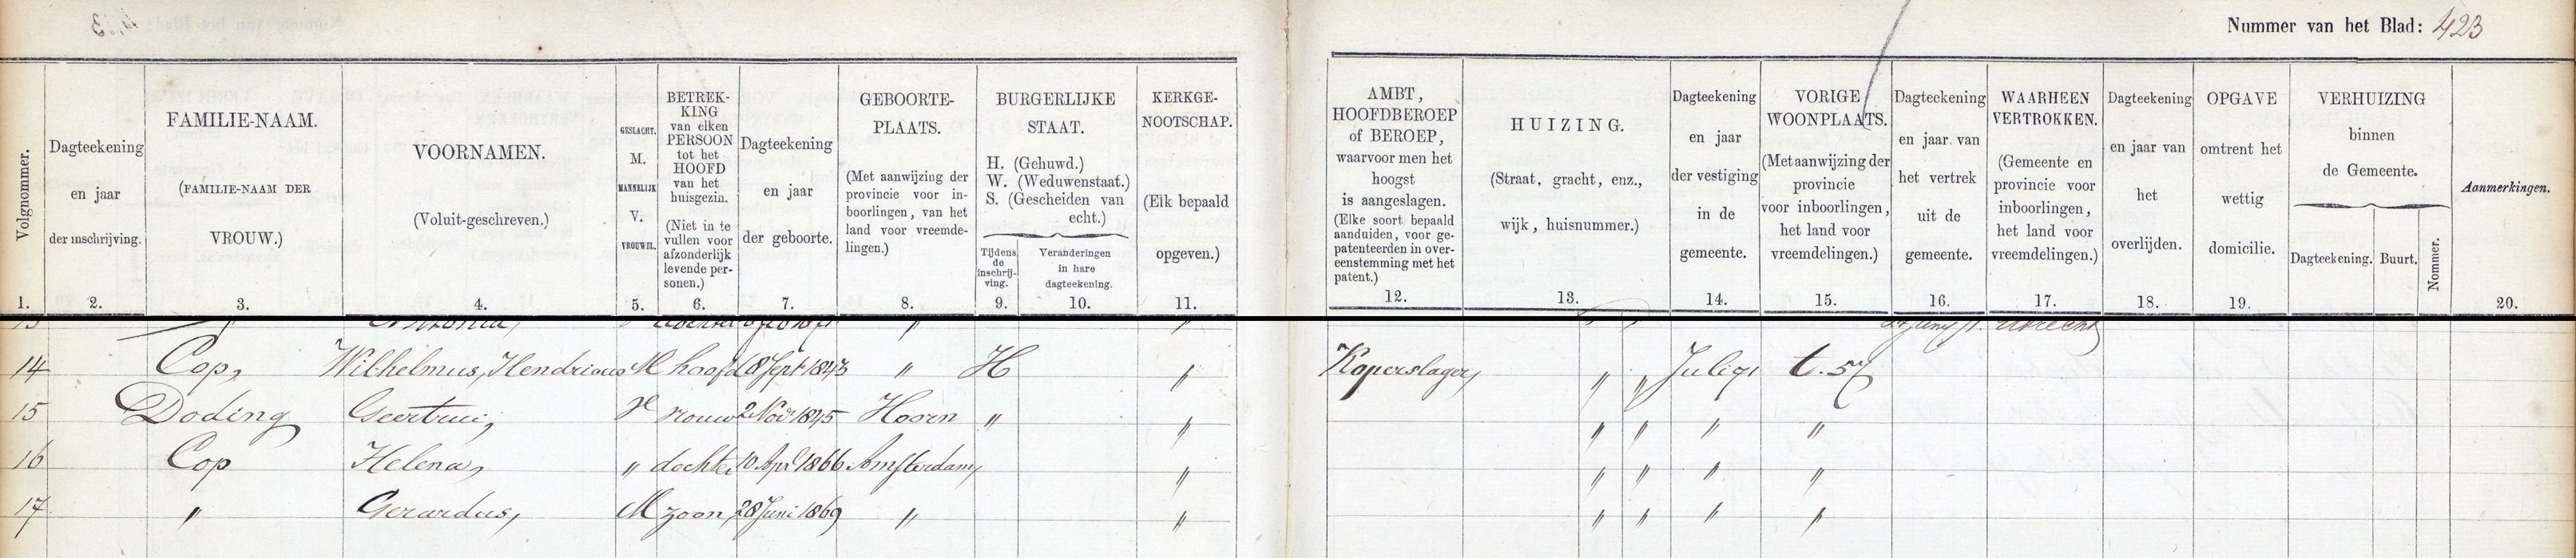 Nummer van het Blad: 423
Volgnommer.
1.
Dagteekening
en jaar
der inschrijving.
2.
FAMILIE-NAAM.
(FAMILIE-NAAM DER
VROUW.)
3.
VOORNAMEN.
(Voluit-geschreven.)
4.
GESLACHT.
M.
MANNELIJK
V.
VROUWEL.
5.
BETREK-
KING
van elken
PERSOON
tot het
HOOFD
van het
huisgezin.
(Niet in te
vullen voor
afzonderlijk
levende per-
sonen.)
6.
Dagteekening
en jaar
der geboorte.
7.
GEBOORTE-
PLAATS.
(Met aanwijzing der
provincie voor in-
boorlingen, van het
land voor vreemde-
lingen.)
8.
BURGERLIJKE
STAAT.
H. (Gehuwd.)
W. (Weduwenstaat.)
S. (Gescheiden van
echt.)
Tijdens
de
inschrij-
ving.
9.
Veranderingen
in hare
dagteekening.
10.
KERKGE-
NOOTSCHAP.
(Elk bepaald
opgeven.)
11.
AMBT,
HOOFDBEROEP
of BEROEP,
waarvoor men het
hoogst
is aangeslagen.
(Elke soort bepaald
aanduiden, voor ge-
patenteerden in over-
eenstemming met het
patent.)
12.
HUIZING.
(Straat, gracht, enz.,
wijk, huisnummer.)
13.
Dagteekening
en jaar
der vestiging
in de
gemeente.
14.
VORIGE
WOONPLAATS.
(Met aanwijzing der
provincie
voor inboorlingen,
het land voor
vreemdelingen.)
15.
Dagteekening
en jaar van
het vertrek
uit de
gemeente.
16.
WAARHEEN
VERTROKKEN.
(Gemeente en
provincie voor
inboorlingen,
het land voor
vreemdelingen.)
17.
Dagteekening
en jaar van
het
overlijden.
18.
OPGAVE
omtrent het
wettig
domicilie.
19.
VERHUIZING
binnen
de Gemeente.
Dagteekening. Buurt. Nommer.
Aanmerkingen.
20.
14 Cop, Wilhelmus, Hendricus M hoofd 18 Sept 1843 " H " Koperslager, " " Julij 71 t. 57
15 Doding Geertrui, V vrouw 2 Nov 1845 Hoorn " " " " " "
16 Cop Helena, " dochter 10 Apl 1866 Amsterdam, " " " " "
17 " Gerardus, M zoon, 28 Juni 1869 " " " " " "